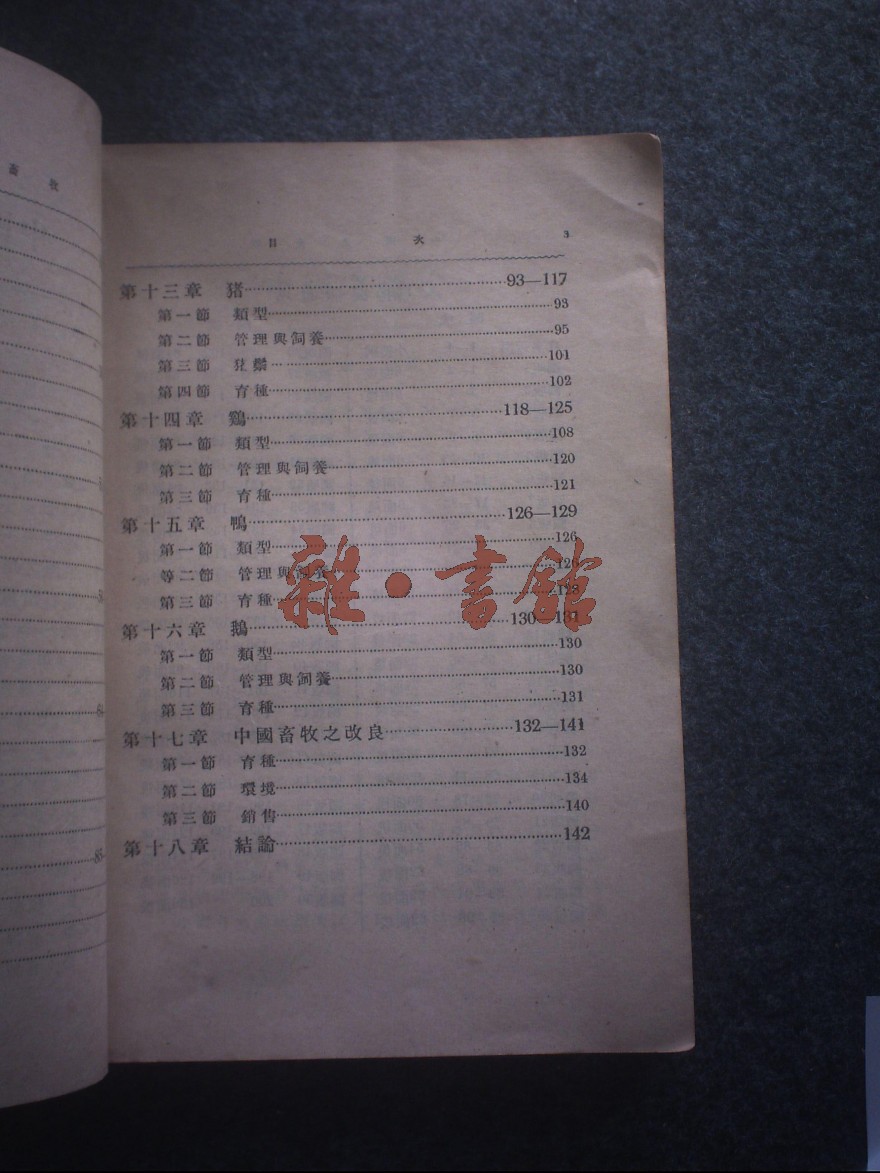 畜 牧
目 次 3
第十三章 猪 93—117
第一節 類型 93
第二節 管理與飼養 95
第三節 猪鬃 101
第四節 育種 102
第十四章 鷄 118—125
第一節 類型 108
第二節 管理與飼養 120
第三節 育種 121
第十五章 鴨 126—129
第一節 類型 126
等二節 管理與飼養
第三節 育種 128
第十六章 鵝 130—131
第一節 類型 130
第二節 管理與飼養 130
第三節 育種 131
第十七章 中國畜牧之改良 132—141
第一節 育種 132
第二節 環境 134
第三節 銷售 140
第十八章 結論 142
雜·書館